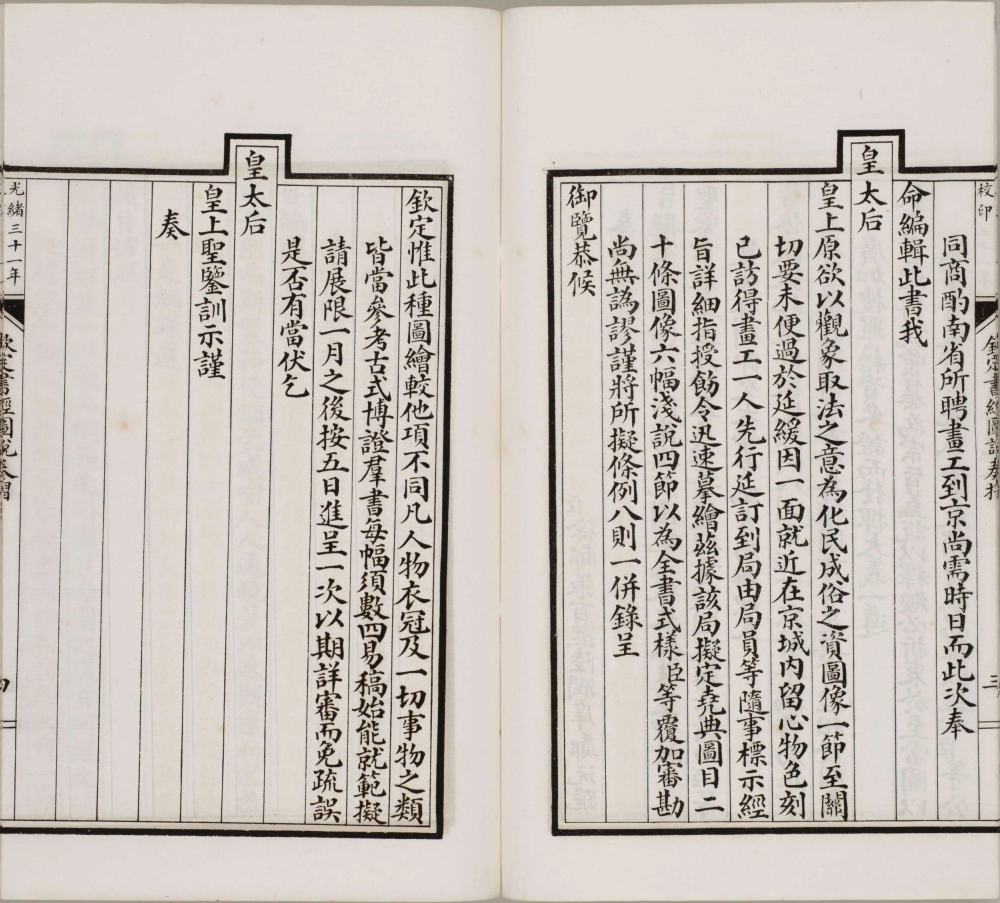 校印
欽定書經圖說奏摺
三
同商酌南省所聘畫工到京尚需時日而此次奉
命編輯此書我
皇太后
皇上原欲以觀象取法之意為化民成俗之資圖像一節至關
切要未便過於延緩因一面就近在京城內留心物色刻
已訪得畫工一人先行延訂到局由局員等隨事標示經
旨詳細指授飭令迅速摹繪茲據該局擬定堯典圖目二
十條圖像六幅淺說四節以為全書式樣臣等覆加審勘
尚無譌謬謹將所擬條例八則一併錄呈
御覽恭候
欽定惟此種圖繪較他項不同凡人物衣冠及一切事物之類
皆當參考古式博證羣書每幅須數四易稿始能就範擬
請展限一月之後按五日進呈一次以期詳審而免疏誤
是否有當伏乞
皇太后
皇上聖鑒訓示謹
奏
光緒三十一年
欽定書經圖說奏摺
四